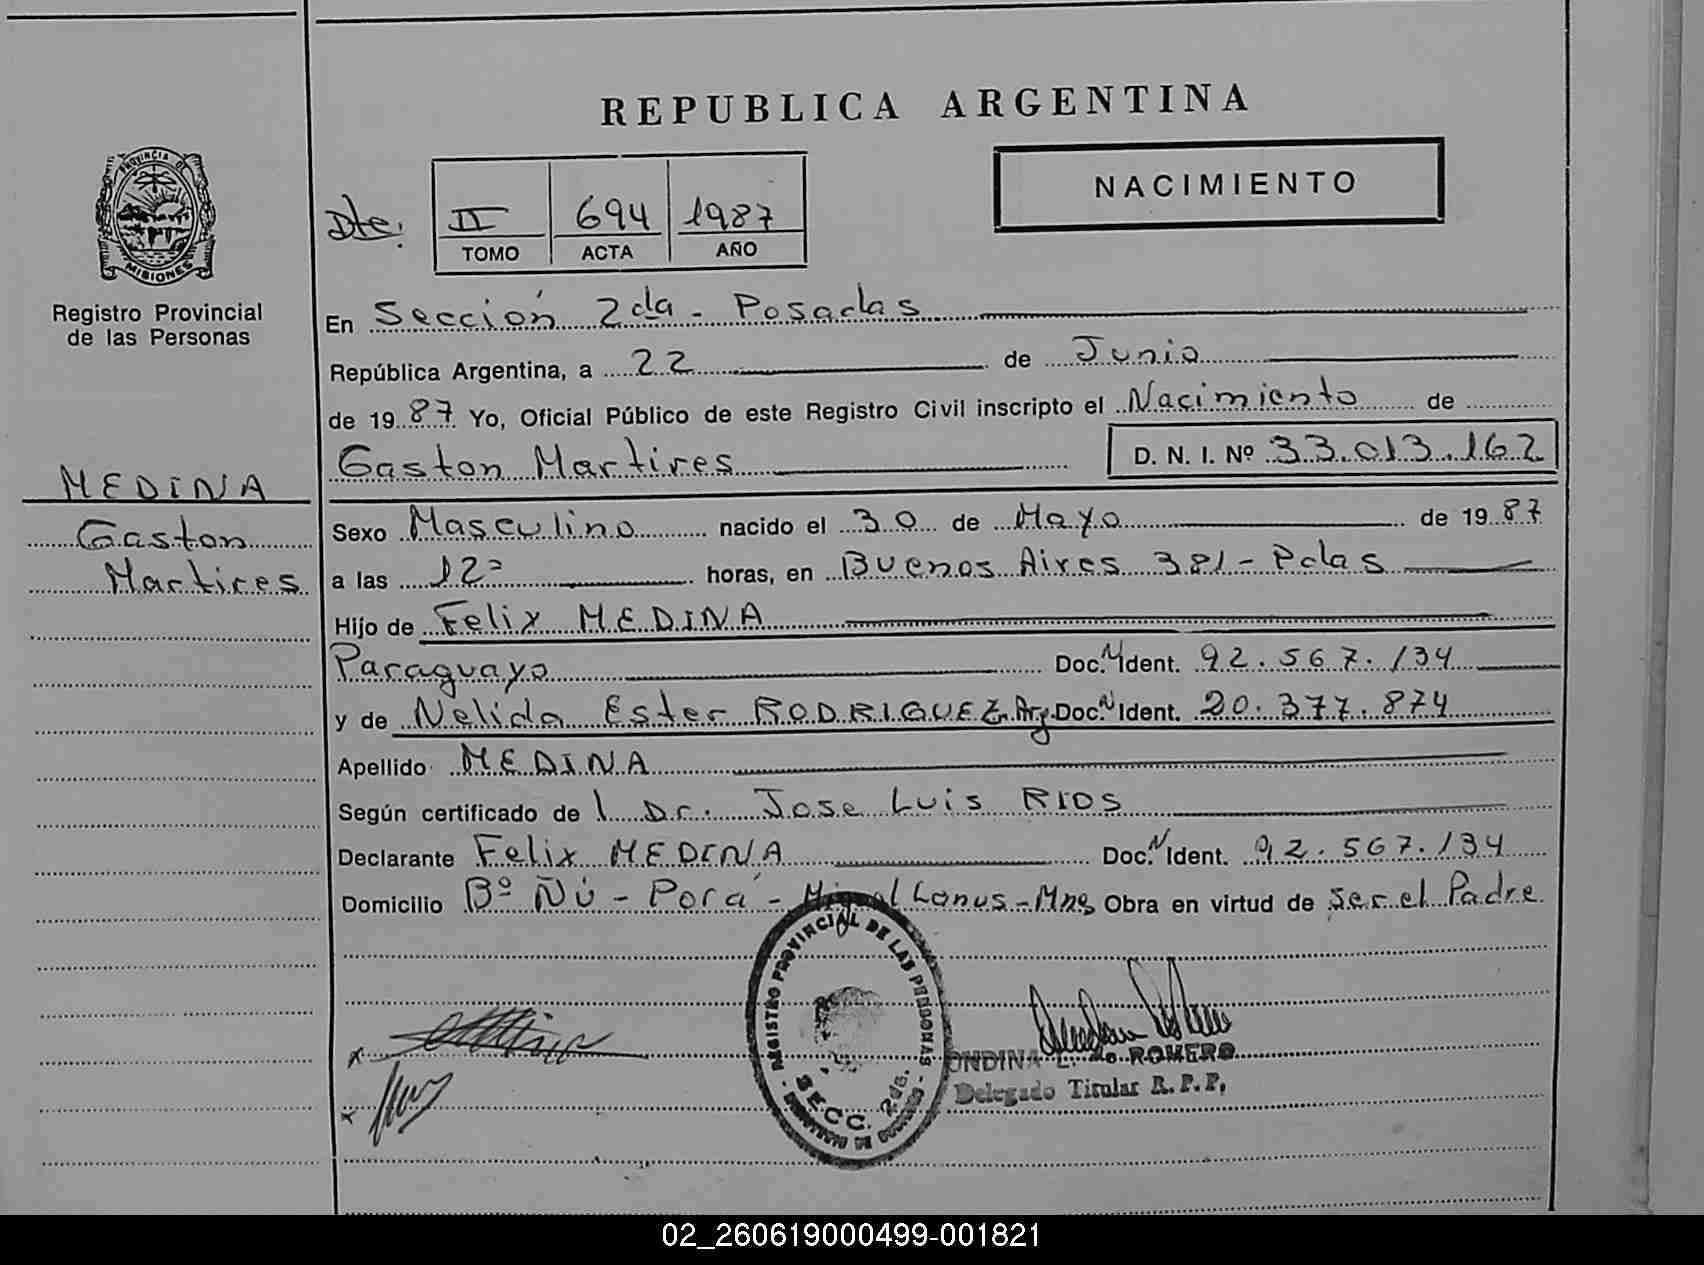 REPUBLICA ARGENTINA
NACIMIENTO
Dte: II 694 1987
TOMO ACTA AÑO
PROVINCIA DE
MISIONES
Registro Provincial
de las Personas
MEDINA
Gaston
Martires
En Sección 2da - Posadas
República Argentina, a 22 de Junio
de 1987 Yo, Oficial Público de este Registro Civil inscripto el Nacimiento de
Gaston Martires D. N. I. Nº 33.013.162
Sexo Masculino nacido el 30 de Mayo de 1987
a las 12ª horas, en Buenos Aires 381 - Pdas
Hijo de Felix MEDINA
Paraguayo Doc. N Ident. 92.567.134
y de Nelida Ester RODRIGUEZ. Arg. Doc. N Ident. 20.377.874
Apellido MEDINA
Según certificado de l Dr. Jose Luis RIOS
Declarante Felix MEDINA Doc. N Ident. 92.567.134
Domicilio Bº Ñú - Porá - Miguel Lanus - Mnes Obra en virtud de ser el Padre
REGISTRO PROVINCIAL DE LAS PERSONAS
SECC. 2da.
ONDINA E. ROMERO
Delegado Titular R. P. P.
02_260619000499-001821